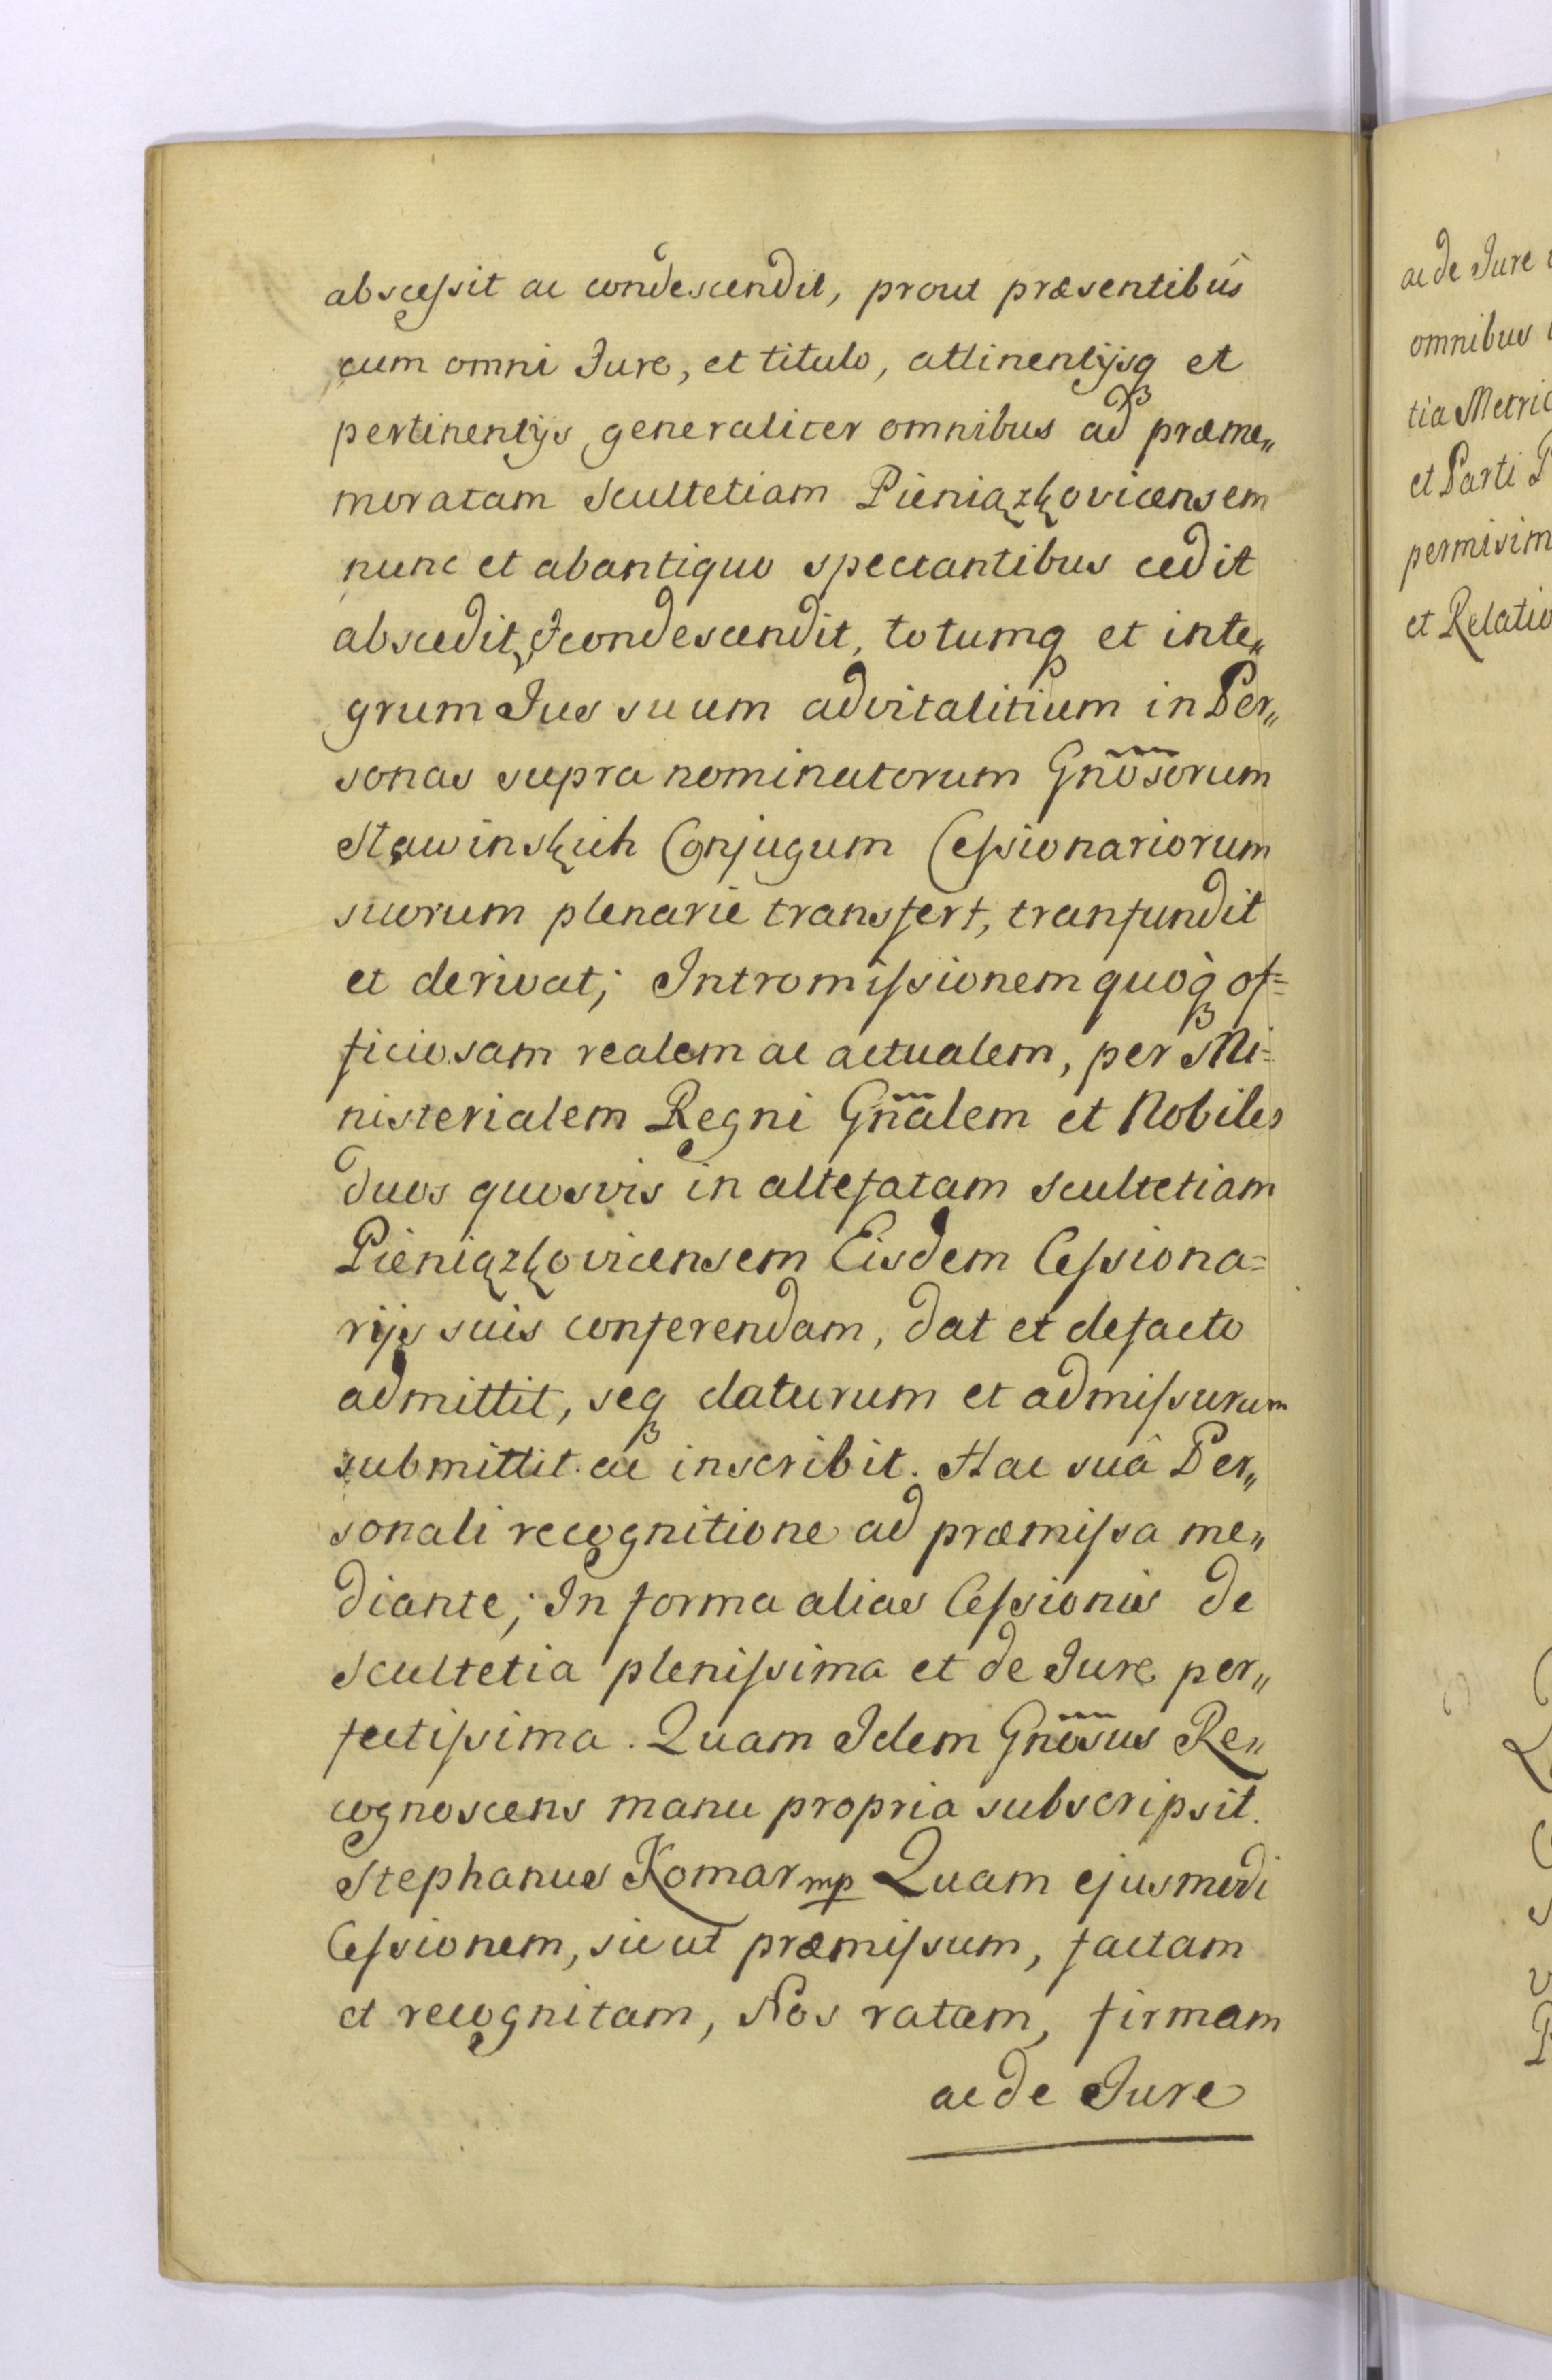 abscessit ac condescendit, prout præsentibûs
cum omni Jure, et titulo, attinentijsq₃ et
pertinentijs generaliter omnibus ad præme„
moratam Scultetiam Pieniązkovicensem
nunc et abantiquo spectantibus cedit
abscedit, & condescendit, totumq₃ et inte„
grum Jus suum advitalitium in Per„
sonas supra nominatorum Gnõsorum
Stawinskich Conjugum Cessionariorum
suorum plenarie transfert, tranfundit
et derivat; Intromissionem quoq₃ of=
ficiosam realem ac actualem, per Mi=
nisterialem Regni Gñalem et Nobiles
duos quosvis in altefatam scultetiam
Pieniązkovicensem Eisdem Cessiona=
rijs suis conferendam, dat et defacto
admittit, seq₃ daturum et admissurum
submittit ac inscribit. Hac suâ Per„
sonali recognitione ad præmissa me„
diante; In forma alias Cessionis de
Scultetia plenissima et de Jure per„
fectissima. Quam Idem Gnõsus Re„
cognoscens manu propria subscripsit.
Stephanus Komar mp Quam ejusmodi
Cessionem, sicut præmissum, factam
et recognitam, Nos ratam, firmam
ac de Jure
ac de Jure
omnibus
tia Metric
et Parti P
permisim
et Relatio